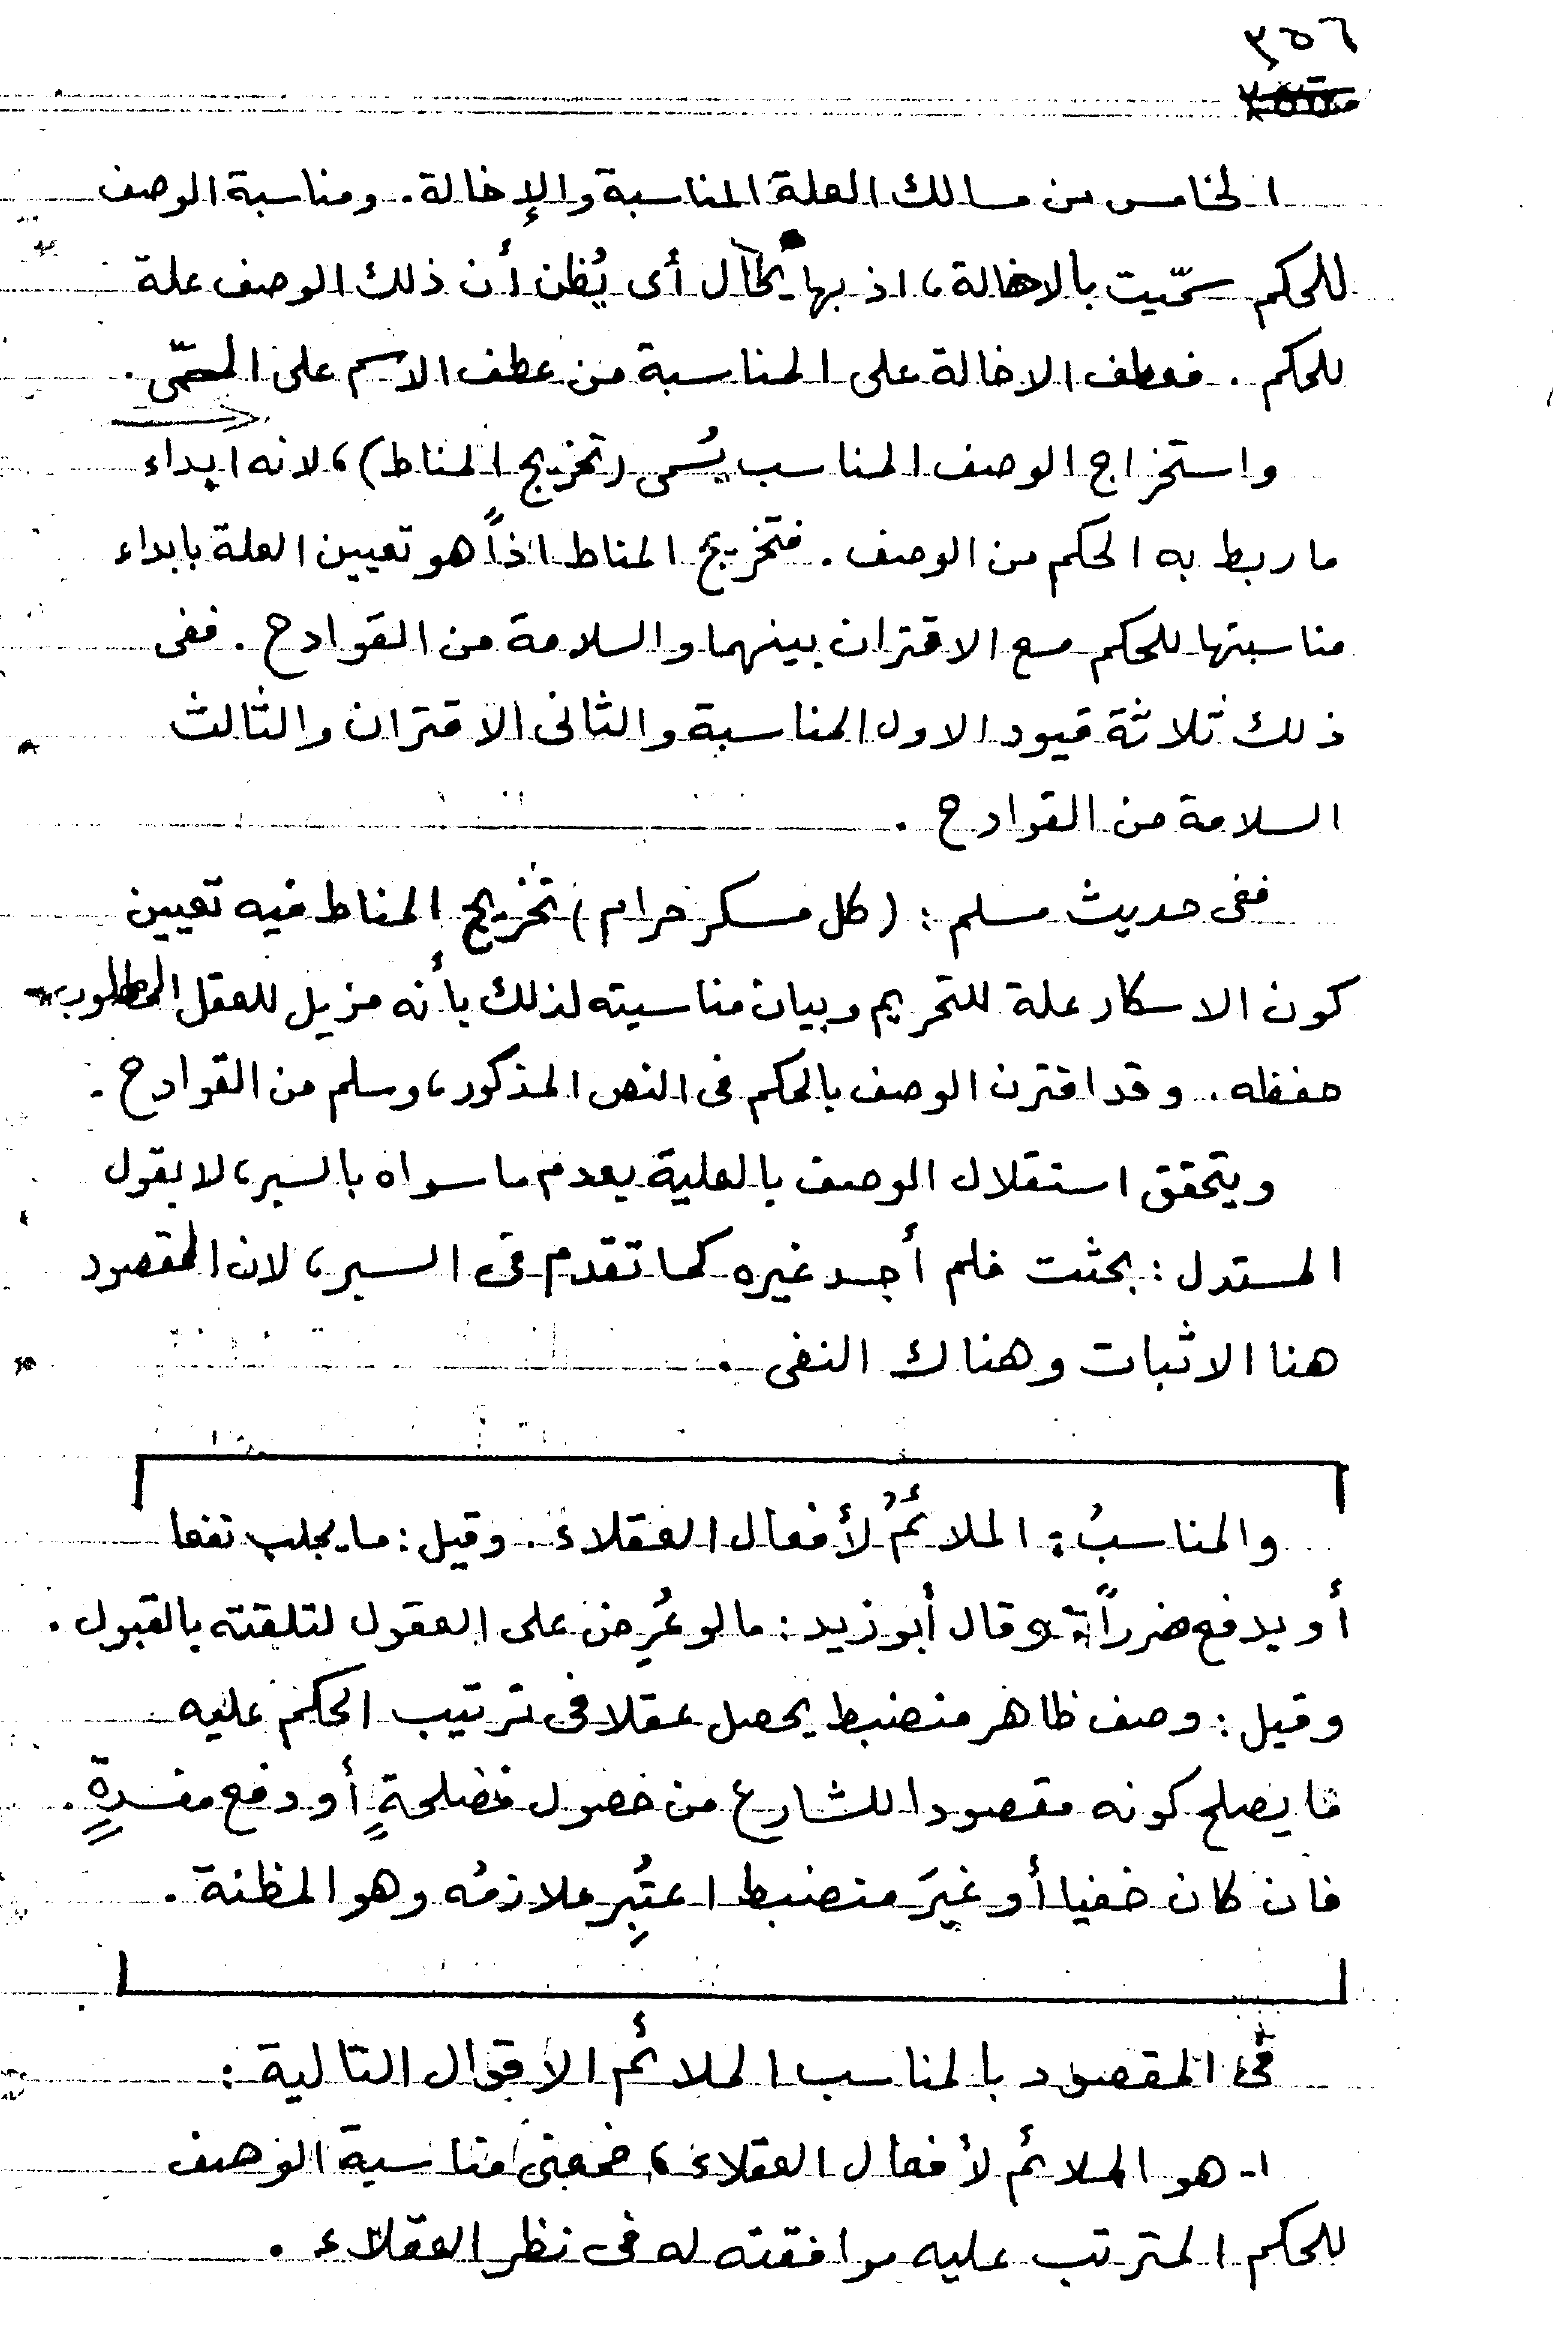 ٣٥٦
الخامس من مسالك العلة المناسبة والإخالة. ومناسبة الوصف
للحكم سمّيت بالاخالة، اذ بها يخال أى يُظن أن ذلك الوصف علة
للحكم . فعطف الاخالة على المناسبة من عطف الاسم على المسمّى .
واستخراج الوصف المناسب يُسمى (تخريج المناط)، لانه ابداء
ما ربط به الحكم من الوصف . فتخريج المناط اذاً هو تعيين العلة بابداء
مناسبتها للحكم مع الاقتران بينهما والسلامة من القوادح . ففى
ذلك ثلاثة قيود الاول المناسبة والثانى الاقتران والثالث
السلامة من القوادح .
ففى حديث مسلم : (كل مسكر حرام) تخريج المناط فيه تعيين
كون الاسكار علة للتحريم وبيان مناسبته لذلك بأنه مزيل للعقل المطلوب
حفظه . وقد اقترن الوصف بالحكم فى النص المذكور، وسلم من القوادح .
ويتحقق استقلال الوصف بالعلية بعدم ما سواه بالسبر، لا بقول
المستدل : بحثت فلم أجد غيره كما تقدم فى السبر، لان المقصود
هنا الاثبات وهناك النفى .
والمناسبُ : الملائمُ لأفعال العقلاء . وقيل : ما يجلب نفعا
أو يدفع ضرراً . وقال أبو زيد : ما لو عُرِض على العقول لتلقته بالقبول .
وقيل : وصف ظاهر منضبط يحصل عقلا فى ترتيب الحكم عليه
ما يصلح كونه مقصودا للشارع من حصول مصلحةٍ أو دفع مفسدةٍ .
فان كان خفيا أو غيرَ منضبط اعتُبِر ملازمُه وهو المظنة .
فى المقصود بالمناسب الملائم الاقوال التالية :
١- هو الملائم لأفعال العقلاء ، فمعنى مناسبة الوصف
للحكم المترتب عليه موافقته له فى نظر العقلاء .